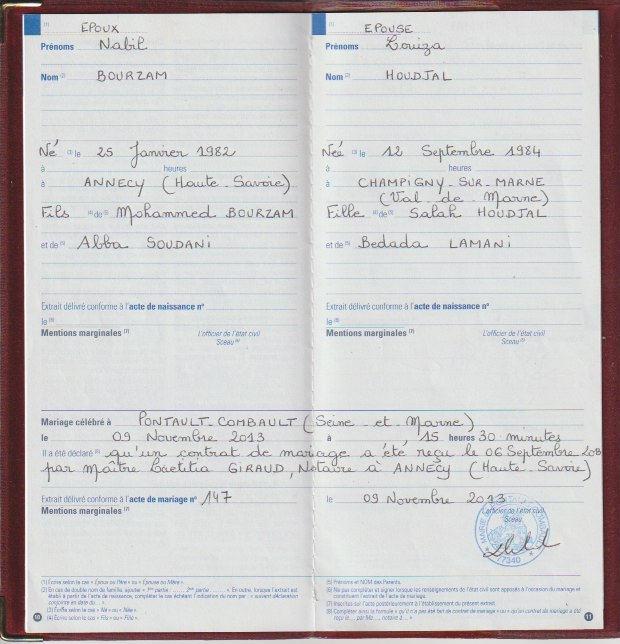 (1) EPOUX
Prénoms Nabil
Nom (2) BOURZAM
Né (3) le 25 Janvier 1982
à heures
à ANNECY (Haute-Savoie)
Fils (4) de (5) Mohammed BOURZAM
et de (5) Abba SOUDANI
Extrait délivré conforme à l'acte de naissance n°
le (6)
Mentions marginales (7) L'officier de l'état civil
Sceau (6)
(1) EPOUSE
Prénoms Louiza
Nom (2) HOUDJAL
Née (3) le 12 Septembre 1984
à heures
à CHAMPIGNY-SUR-MARNE
(Val de Marne)
Fille (4) de (5) Salah HOUDJAL
et de (5) Bedada LAMANI
Extrait délivré conforme à l'acte de naissance n°
le (6)
Mentions marginales (7) L'officier de l'état civil
Sceau (6)
Mariage célébré à PONTAULT-COMBAULT (Seine et Marne)
le 09 Novembre 2013 à 15 heures 30 minutes
Il a été déclaré (8) qu'un contrat de mariage a été reçu le 06 Septembre 2013
par Maître Laetitia GIRAUD, Notaire à ANNECY (Haute-Savoie)
Extrait délivré conforme à l'acte de mariage n° 147 le 09 Novembre 2013
Mentions marginales (7) L'officier de l'état civil
Sceau
77340
(1) Écrire selon le cas « Époux ou Père » ou « Épouse ou Mère ».
(2) En cas de double nom de famille, ajouter « 1re partie : ....... 2nde partie : ....... ». En outre, lorsque l'extrait est
établi à partir de l'acte de naissance, compléter le cas échéant l'indication du nom par... « suivant déclaration
conjointe en date du... ».
(3) Écrire selon le cas « Né » ou « Née ».
(4) Écrire selon le cas « Fils » ou « Fille ».
10
(5) Prénoms et NOM des Parents.
(6) Ne pas compléter et signer lorsque les renseignements de l'état civil sont apposés à l'occasion du mariage et
constituent l'extrait de mariage.
(7) Inscrites sur l'acte postérieurement à l'établissement du présent extrait.
(8) Compléter ainsi la formule « qu'il n'a pas été fait de contrat de mariage » ou « qu'un contrat de mariage a été
reçu le... par Me..., notaire à... »
11